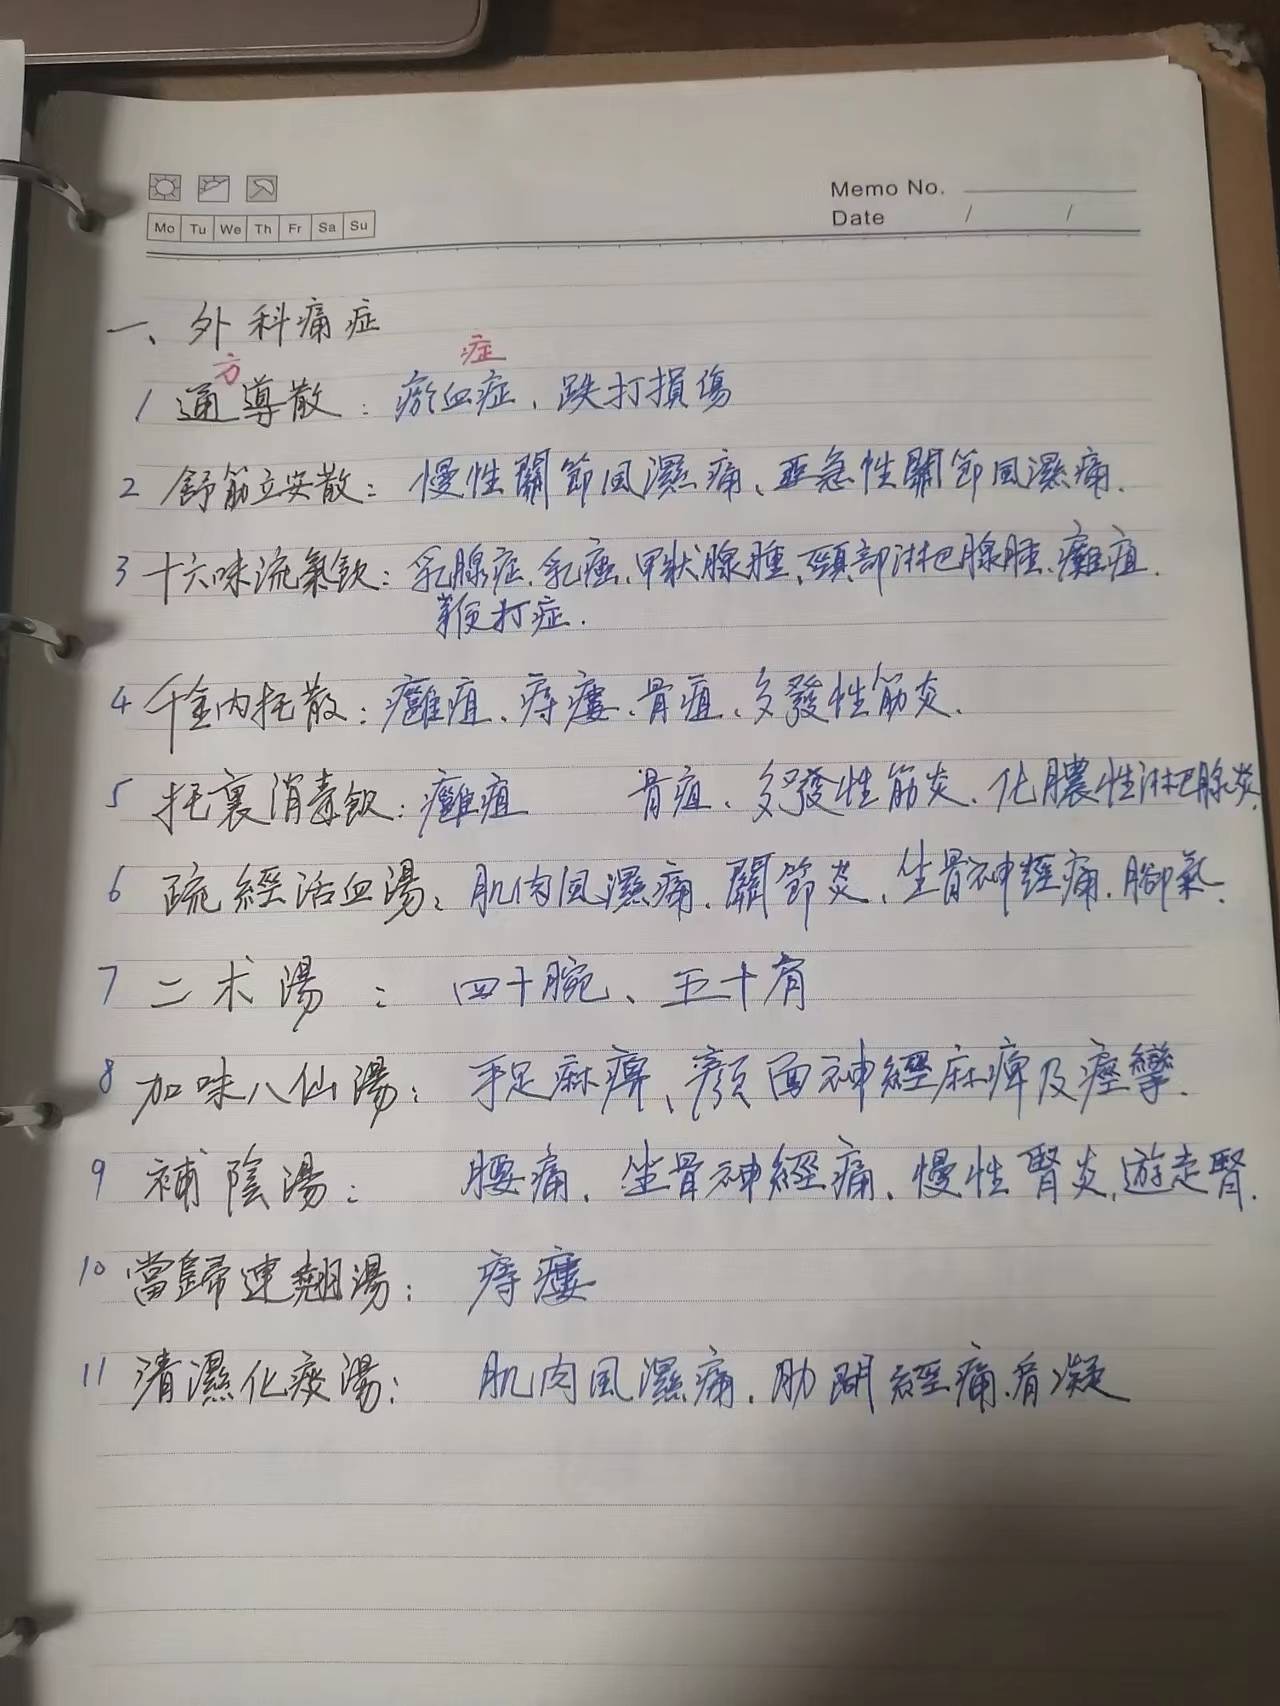 Memo No.
Date / /
Mo Tu We Th Fr Sa Su
一、外科痛症
方 症
1 通導散：瘀血症、跌打損傷
2 舒筋立安散：慢性關節风濕痛、亞急性關節风濕痛.
3 十六味流氣飲：乳腺症、乳癌、甲狀腺腫、頸部淋巴腺腫、癰疽.
鞭打症.
4 千金內托散：癰疽、痔瘻、骨疽、多發性筋炎.
5 托裏消毒飲：癰疽 骨疽、多發性筋炎、化膿性淋巴腺炎.
6 疏經活血湯：肌肉风濕痛、關節炎、坐骨神經痛、腳氣.
7 二术湯：四十腕、五十肩
8 加味八仙湯：手足麻痺、顏面神經麻痺及痙攣.
9 補陰湯：腰痛、坐骨神經痛、慢性腎炎、遊走腎.
10 當歸連翹湯：痔瘻
11 清濕化痰湯：肌肉风濕痛、肋間經痛、肩凝